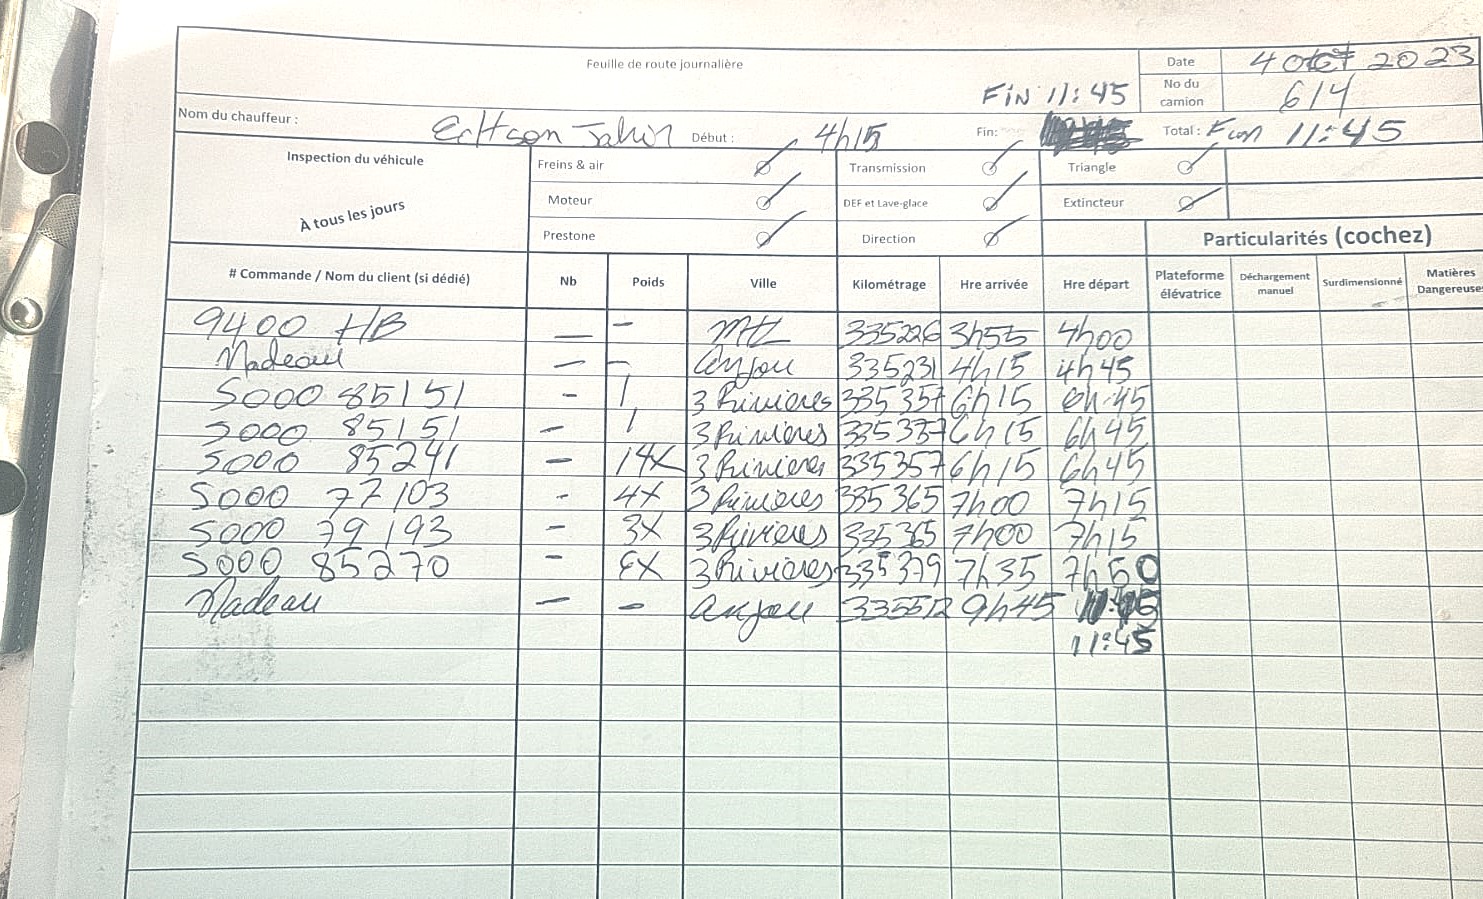 Feuille de route journalière
Date 4 oct 2023
FIN 11:45
No du camion 614
Nom du chauffeur : Début : 4h15 Fin: Total : 11:45
Inspection du véhicule
À tous les jours
Freins & air Transmission Triangle
Moteur DEF et Lave-glace Extincteur
Prestone Direction
Particularités (cochez)
# Commande / Nom du client (si dédié) Nb Poids Ville Kilométrage Hre arrivée Hre départ Plateforme élévatrice Déchargement manuel Surdimensionné Matières Dangereuses
9400 HB — – Mtl 335226 3h55 4h00
Nadeau — – Anjou 335231 4h15 4h45
5000 85151 – 1 3 Rivieres 335357 6h15 6h45
5000 85151 – 1 3 Rivieres 335357 6h15 6h45
5000 85241 – 14x 3 Rivieres 335357 6h15 6h45
5000 77103 – 4x 3 Rivieres 335365 7h00 7h15
5000 79193 – 3x 3 Rivieres 335365 7h00 7h15
5000 85270 – 3 Rivieres 335379 7h35 7h50
Nadeau — – Anjou 335512 9h45
11:45